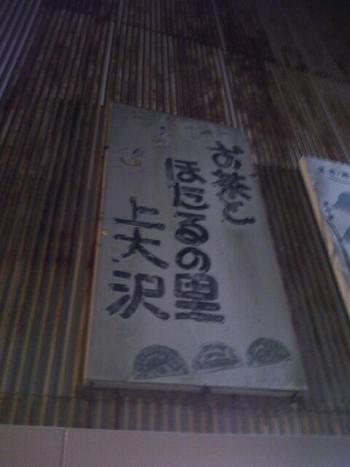 お茶と
ほたるの里
上大沢